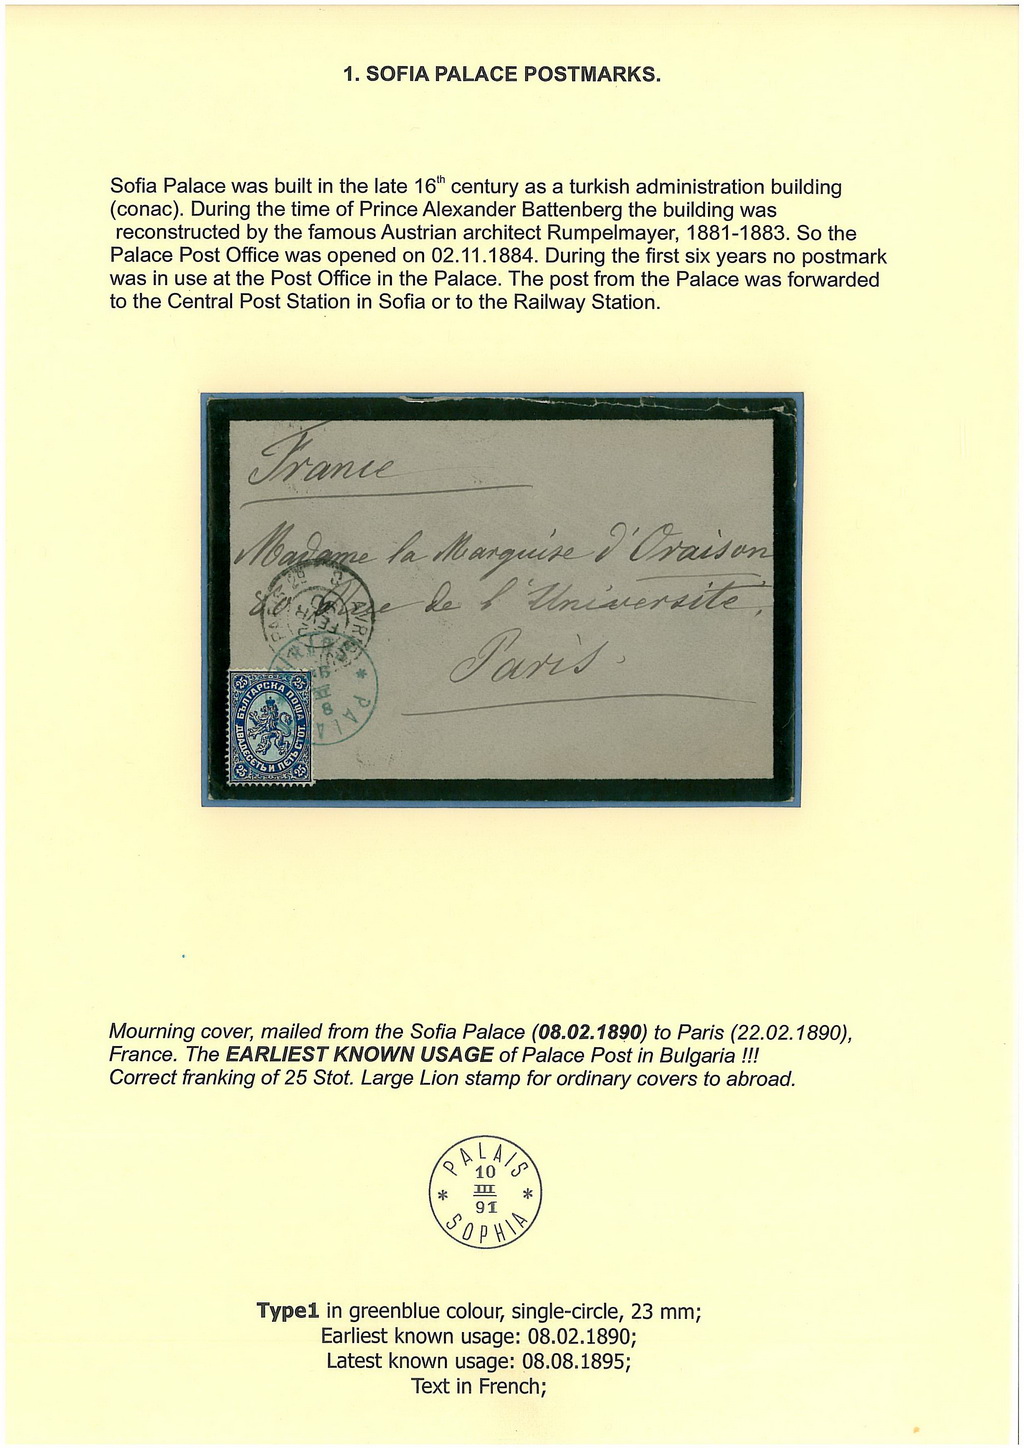 1. SOFIA PALACE POSTMARKS.
Sofia Palace was built in the late 16th century as a turkish administration building
(conac). During the time of Prince Alexander Battenberg the building was
reconstructed by the famous Austrian architect Rumpelmayer, 1881-1883. So the
Palace Post Office was opened on 02.11.1884. During the first six years no postmark
was in use at the Post Office in the Palace. The post from the Palace was forwarded
to the Central Post Station in Sofia or to the Railway Station.
France
Madame la Marquise d'Oraison
de l'Université,
Paris.
25 БЪЛГАРСКА ПОЩА 25
25 ДВАДЕСЕТЬ И ПЕТЬ СТОТ. 25
8
PALA
Mourning cover, mailed from the Sofia Palace (08.02.1890) to Paris (22.02.1890),
France. The EARLIEST KNOWN USAGE of Palace Post in Bulgaria !!!
Correct franking of 25 Stot. Large Lion stamp for ordinary covers to abroad.
PALAIS
10
III
* 91 *
SOPHIA
Type1 in greenblue colour, single-circle, 23 mm;
Earliest known usage: 08.02.1890;
Latest known usage: 08.08.1895;
Text in French;